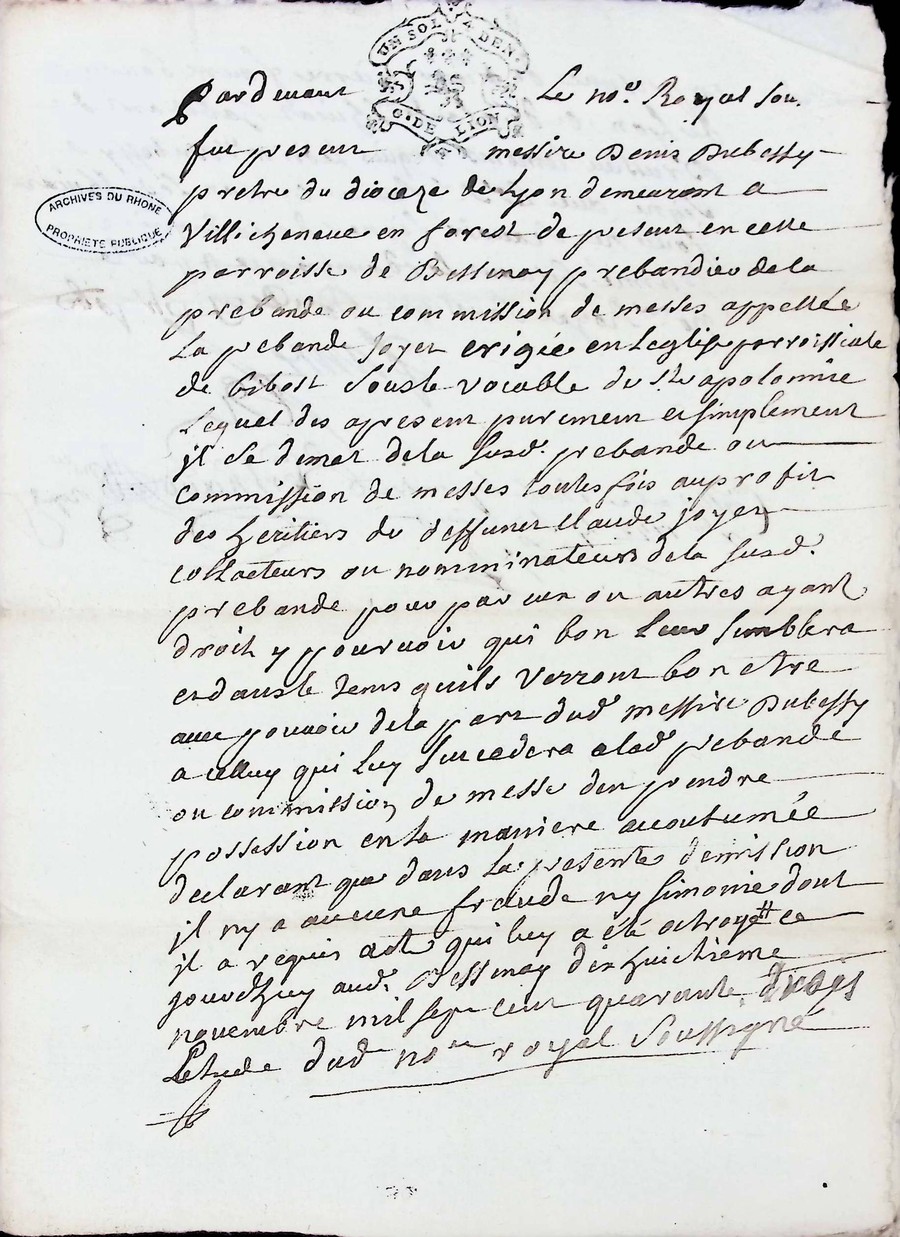 UN SOL 4 DEN.
G. DE LION
ARCHIVES DU RHONE
PROPRIETE PUBLIQUE
Pardevant Le no.e Royal sou.
fut present messire Denis Dubessy
pretre du dioceze de Lyon demeurant a
Villicheneve en forest de present en cette
parroisse de Bessenay prebandier de la
prebande ou commission de messes appellée
La prebande Joyet erigée en Leglise parroissiale
de bibost sous le vocable de ste apolonnie
Lequel des apresent purement et simplement
il se demet de la susd. prebande ou
commission de messes toutes fois au profit
des heritiers de deffunct Claude joyet
collacteurs ou nomminateurs de la susd.
prebande pour par eux ou autres ayant
droit y pourvoir qui bon Leur semblera
et dans le tems quils verront bon etre
avec pouvoir de la part dud messire Dubessy
a celluy qui luy succedera a lad prebande
ou commission de messe den prendre
possession en la maniere accoutumée
declarant que dans la presente demission
il ny a aucune fraude ny simonie dont
il a requis acte qui luy a été octroyé ce
jourdhuy aud. Bessenay dix huictieme
novembre mil sept cent quarante
Letude dud no.re royal soussigné